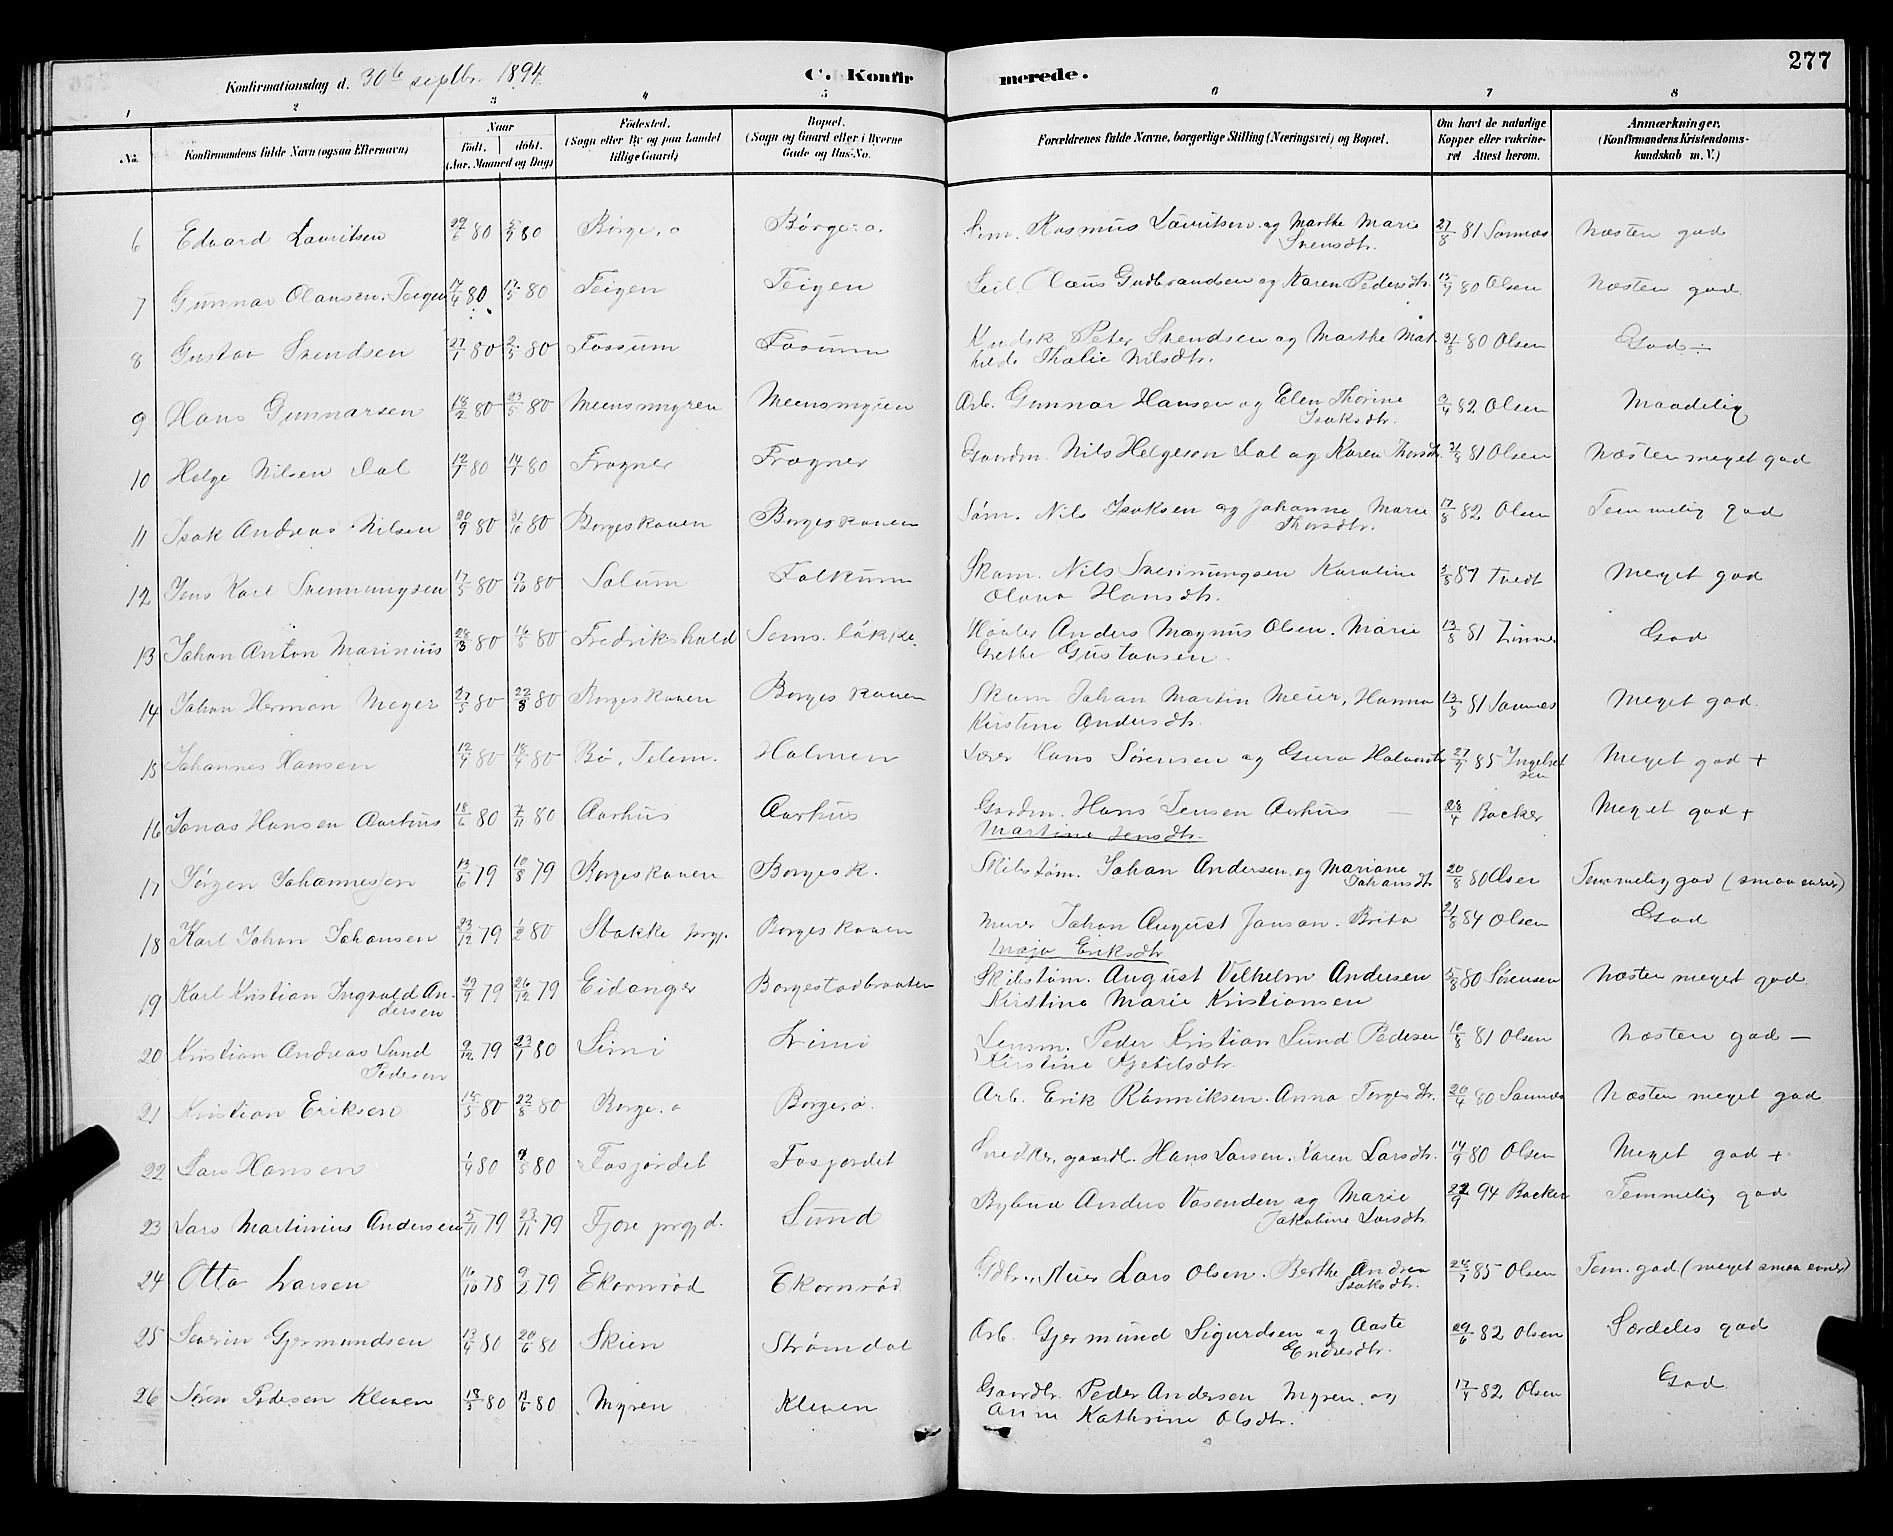 277
Konfirmationsdag d. 30te septbr. 1894
C. Konfirmerede.
1 2 3 4 5 6 7 8
No. Konfirmandens fulde Navn (ogsaa Efternavn) Naar født. døbt. (Aar, Maaned og Dag) Fødested. (Sogn eller By og paa Landet tillige Gaard) Bopæl. (Sogn og Gaard eller i Byerne Gade og Hus-No. Forældrenes fulde Navne, borgerlige Stilling (Næringsvei) og Bopæl. Om havt de naturlige Kopper eller vaccineret Attest herom. Anmærkninger. (Konfirmandens Kristendomskundskab m. V.)
6 Edvard Lauritsen 29/6 80 5/9 80 Børge.ø Børge.ø. Rasmus Lauritsen og Marthe Marie Svensdtr. 27/8 81 Sannæs Næsten god
7 Gunnar Olausen Teigen 17/4 80 17/5 80 Teigen Teigen Olaus Gudbrandsen og Karen Pedersdtr. 80 Olsen Næsten god
8 Gustav Svendsen 27/1 80 2/5 80 Fossum Fossum Peter Svendsen og Marthe Mathilde Thalie Nilsdtr. 80 Olsen God ÷
9 Hans Gunnarsen 18/2 80 23/5 80 Meensmyren Meensmyren Arb. Gunnar Hansen og Elen Thorine Isaksdtr. 82 Olsen Maadelig
10 Helge Nilsen Dal 80 80 Frogner Frogner Gaardm. Nils Helgesen Dal og Karen Thorsdtr. 31/8 81 Olsen Næsten meget god
11 Isak Andreas Nilsen 20/9 80 31/10 80 Borgeskaven Borgeskaven Søm. Nils Isaksen og Johanne Marie Thorsdtr. 17/8 82 Olsen Temmelig god
12 Jens Karl Svennungsen 17/5 80 17/10 80 Solum Falkum Skom. Nils Svennungsen Karoline Olava Hansdtr. 87 Tvedt Meget god
13 Johan Anton Marinius 80 16/5 80 Fredrikshald Sems. løkke. Anders Magnus Olsen. Marie Grethe Gustavsen. 13/8 81 Zinner God
14 Johan Herman Meyer 27/5 80 22/8 80 Borgeskaven Borgeskaven Skom. Johan Martin Meier, Hanna Kirstine Andersdtr. 13/5 81 Sannæs Meget god.
15 Johannes Hansen 80 80 Bø, Telem. Holmen Lærer Hans Sørensen og Guro Halvorsdtr 85 Ingebretsen Meget god +
16 Jonas Hansen Aarhus 18/6 80 7/11 80 Aarhus Aarhus Gaardm. Hans Jensen Aarhus — Martine Jensdtr. 28/4 Backer Meget god +
17 Jørgen Johannesen 13/6 79 10/8 79 Borgeskaven Borgesk. Johan Andersen og Mariane Johansdtr 20/8 80 Olsen Temmelig god (smaa evner)
18 Karl Johan Johansen 23/12 79 1/2 80 Stokke prgj. Borgeskaven Murer Johan August Janson. Brita Maja Eriksdtr. 21/8 84 Olsen God
19 Karl Kristian Ingvald Andersen 29/9 79 26/12 79 Eidanger Borgestadbraaten Skibstøm. August Vilhelm Andersen Kirstine Marie Kristiansen 5/8 80 Sørensen Næsten meget god.
20 Kristian Andreas Lund Pedersen 9/12 79 23/1 80 Limi Limi Peder Kristian Lund Pedersen Kirstine Kjetilsdtr. 10/8 81 Olsen Næsten god —
21 Kristian Eriksen 15/5 80 22/8 80 Borge.ø Borge.ø. Arb. Erik Rønniksen. Anna Torgersdtr. 20/4 80 Sannæs Næsten meget god
22 Lars Hansen 80 80 Fosjordet Fosjordet Snedker, gaardl. Hans Larsen. Karen Larsdtr. 14/9 80 Olsen Meget god +
23 Lars Martinius Andersen 5/11 79 23/11 79 Fjære prgjd. Lund Anders Vasenden og Marie Jakobine Larsdtr. 22/9 94 Backer Temmelig god
24 Otto Larsen 16/10 78 9/2 79 Ekornrød Ekornrød Lars Olsen. Berthe Andrea Isaksdtr. 85 Olsen Tem. god (meget smaa evner)
25 Severin Gjermundsen 13/4 80 20/6 80 Skien Strømdal Arb. Gjermund Sigurdsen og Aaste Endresdtr. 29/6 82 Olsen Særdeles god
26 Søren Pedersen Kleven 18/3 80 80 Myren Kleven Gaardbr. Peder Andersen Myren. og Anne Kathrine Olsdtr. 82 Olsen God